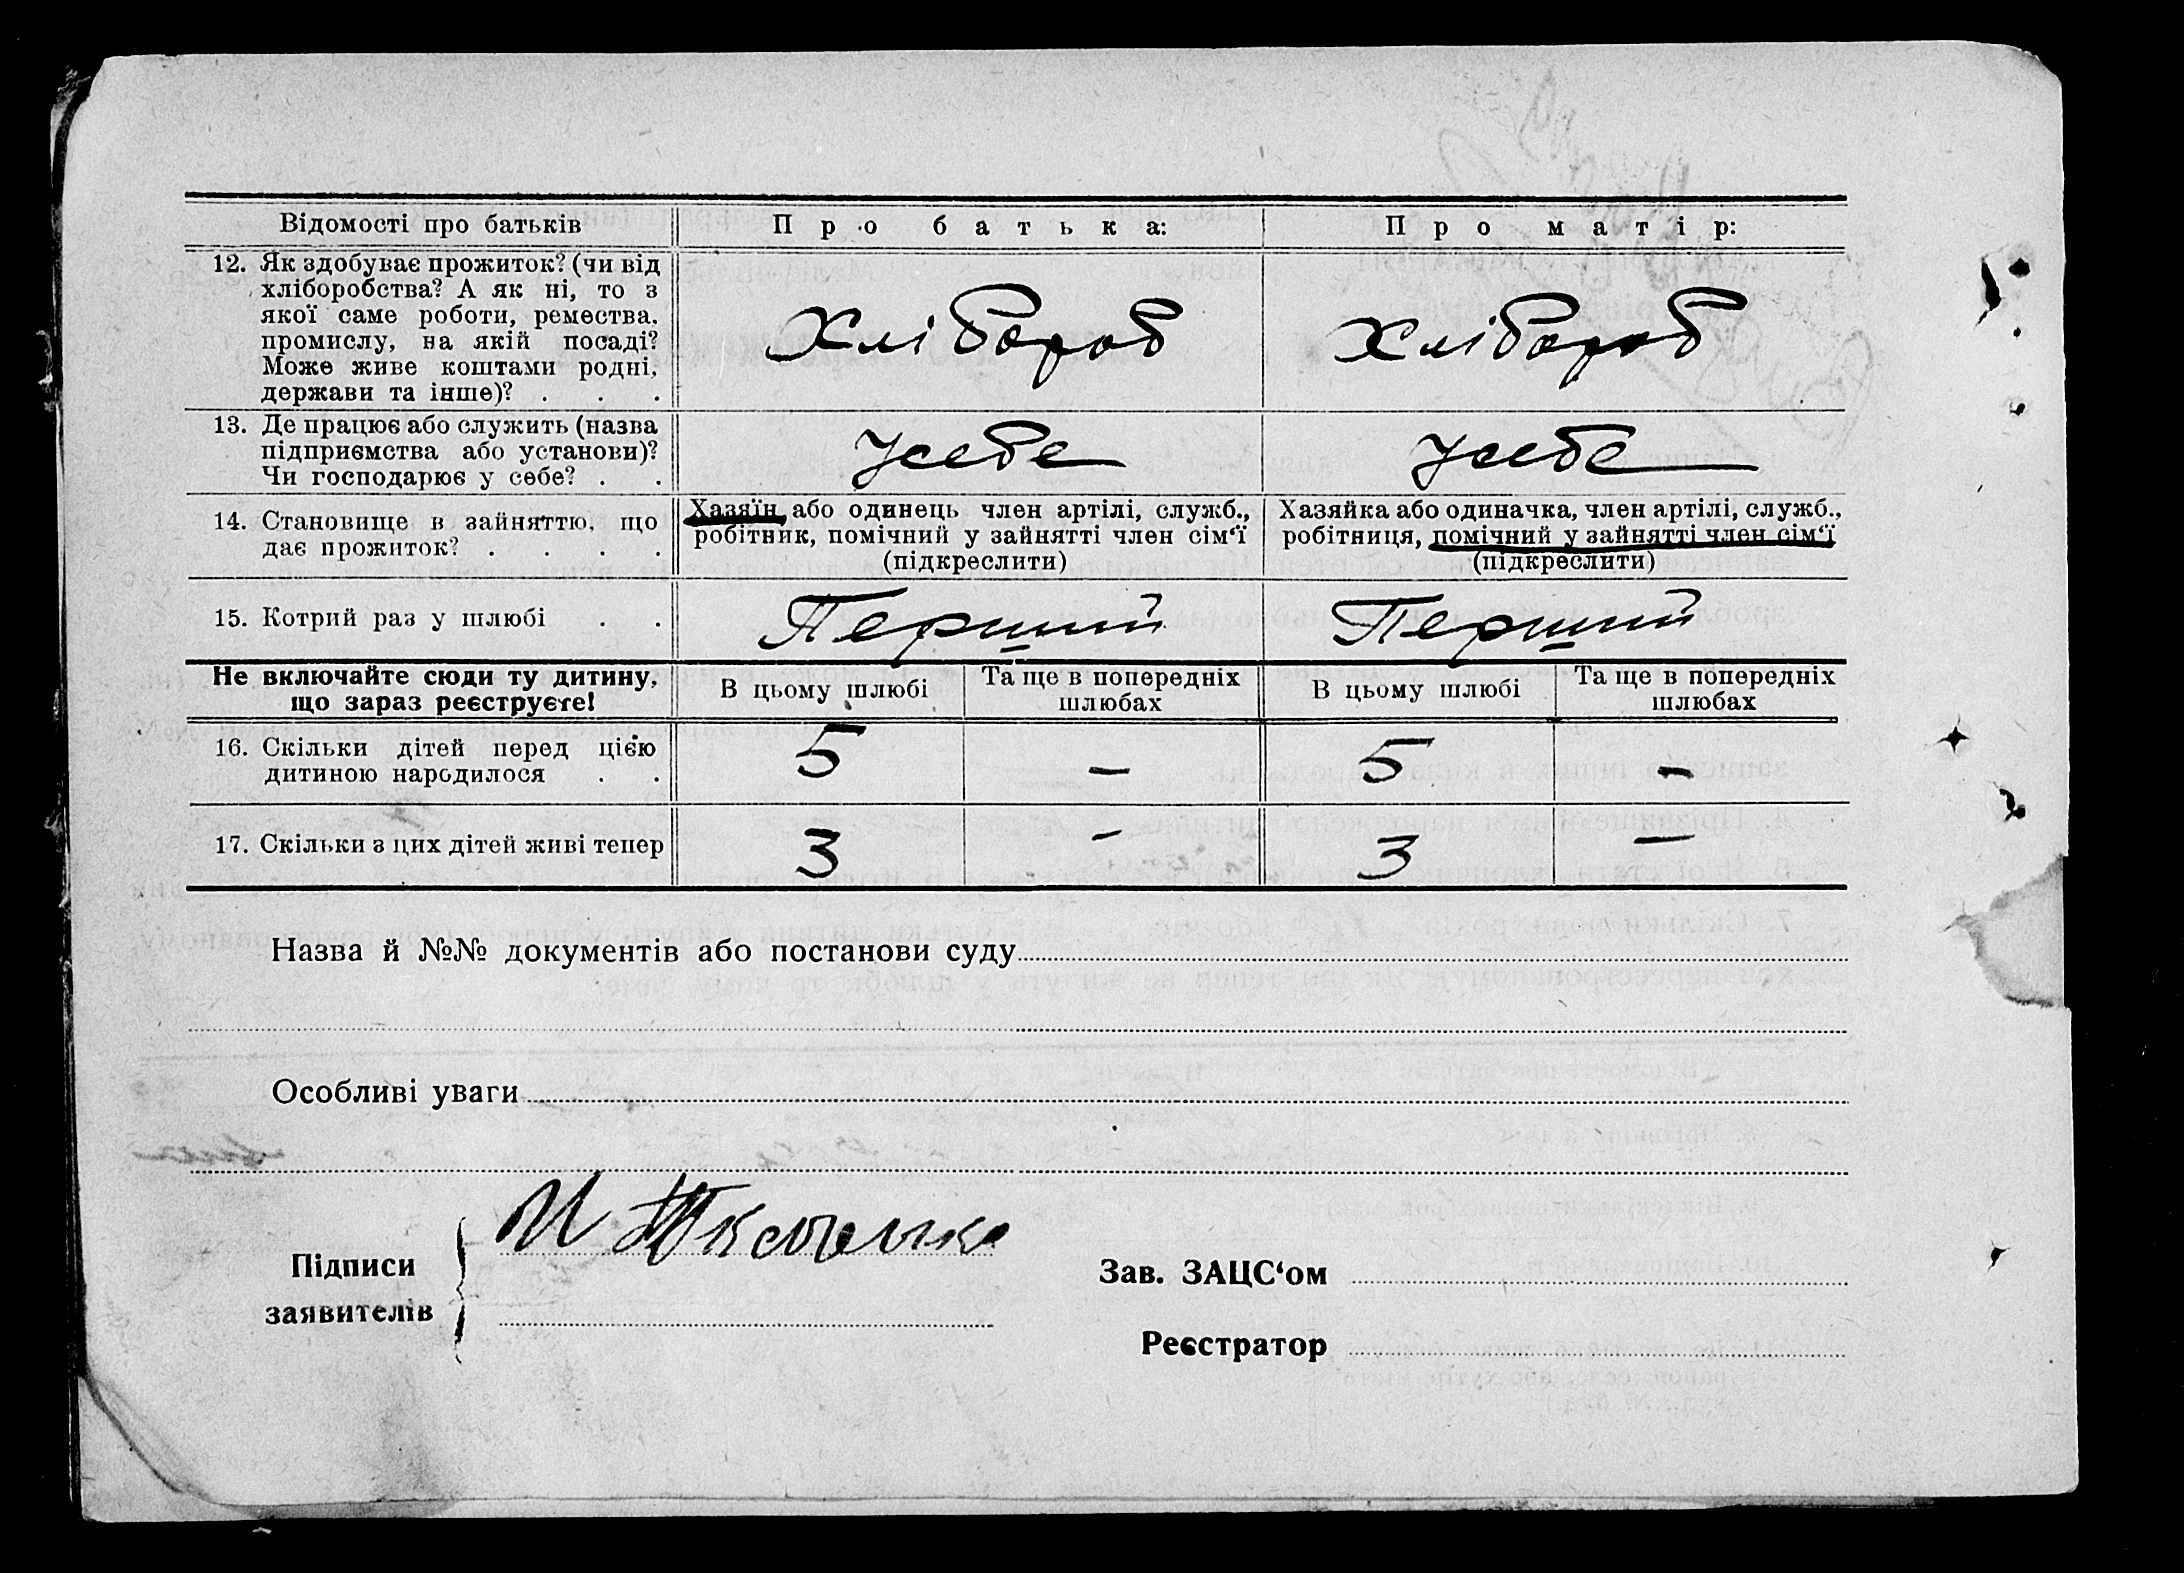 Відомості про батьків
Про батька:
Про матір:
12. Як здобуває прожиток? (чи від
хліборобства? А як ні, то з
якої саме роботи, ремества,
промислу, на якій посаді?
Може живе коштами родні,
держави та інше)? . . .
Хлібороб
Хлібороб
13. Де працює або служить (назва
підприємства або установи)?
Чи господарює у себе? . .
у себе
у себе
14. Становище в зайняттю, що
дає прожиток? . . . .
Хазяїн, або одинець член артілі, служб.,
робітник, помічний у зайнятті член сім‘ї
(підкреслити)
Хазяйка або одиначка, член артілі, служб.,
робітниця, помічний у зайнятті член сім‘ї
(підкреслити)
15. Котрий раз у шлюбі . .
Перший
Перший
Не включайте сюди ту дитину,
що зараз реєструєте!
В цьому шлюбі
Та ще в попередніх
шлюбах
В цьому шлюбі
Та ще в попередніх
шлюбах
16. Скільки дітей перед цією
дитиною народилося . .
5
—
5
—
17. Скільки з цих дітей живі тепер
3
—
3
—
Назва й №№ документів або постанови суду
Особливі уваги
Підписи
заявителів
Зав. ЗАЦС‘ом
Реєстратор